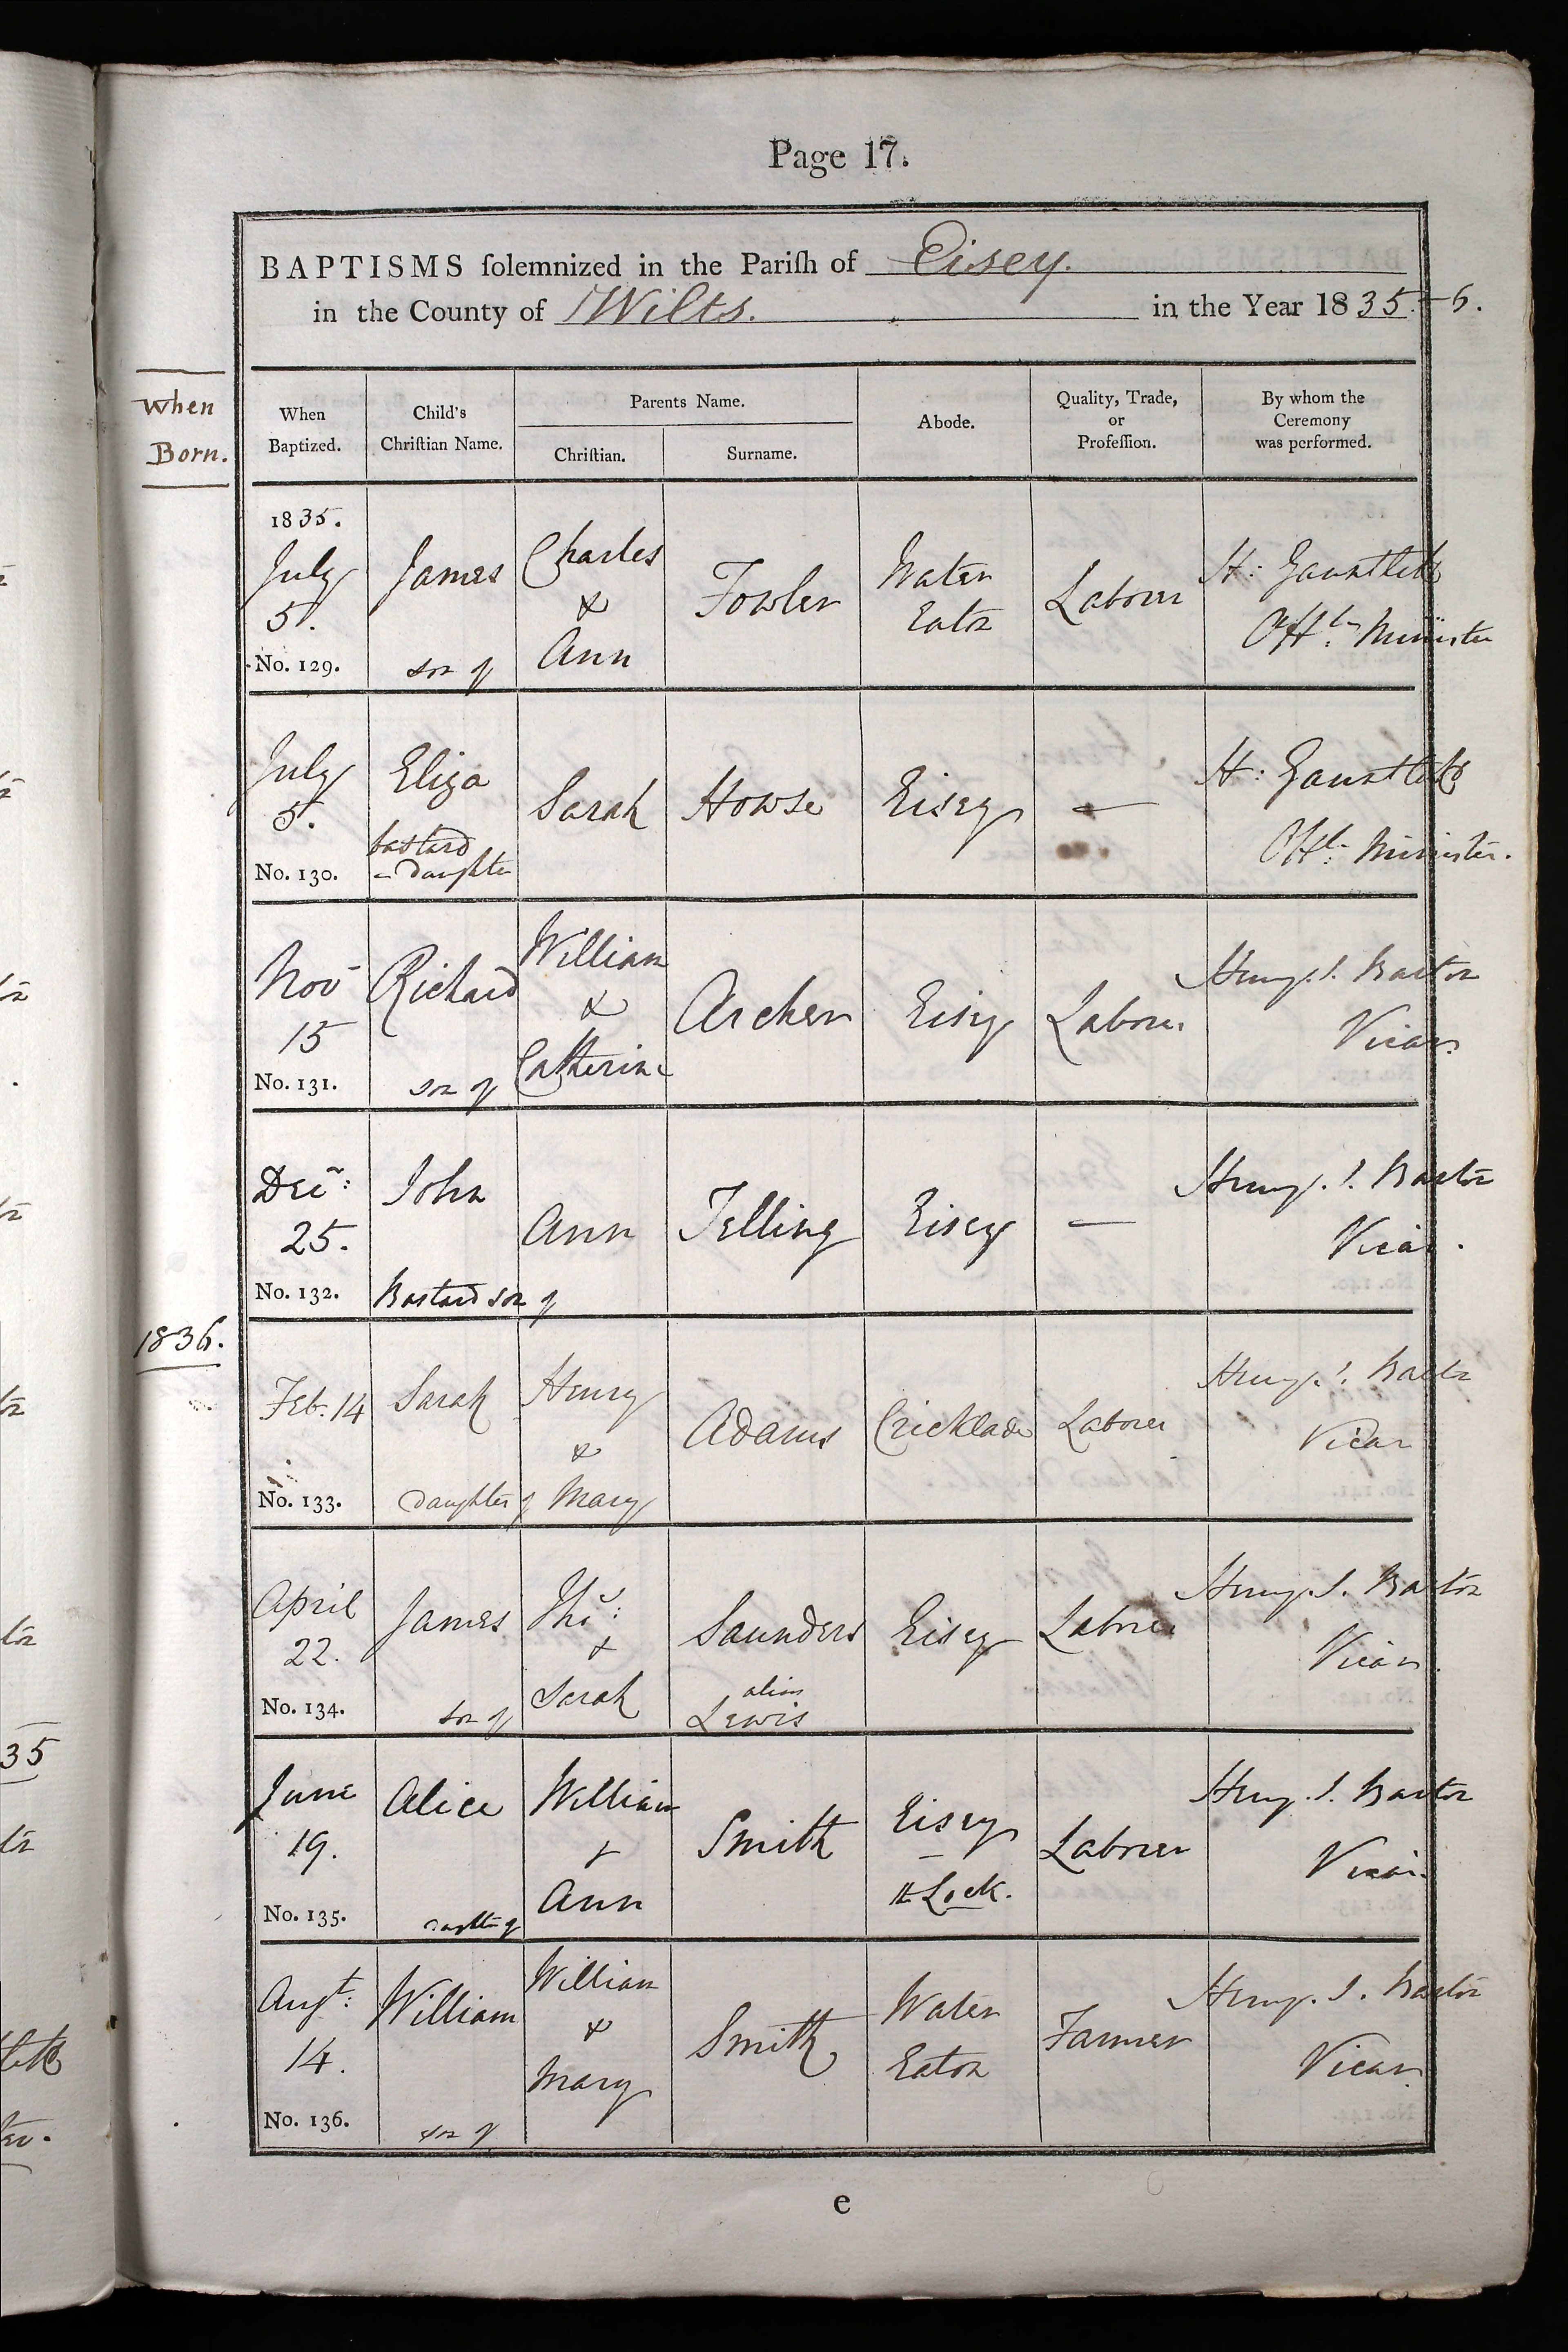 Page 17.
BAPTISMS ſolemnized in the Pariſh of Eisey.
in the County of Wilts. in the Year 1835-6.
When
Born.
When
Baptized.
Child's
Chriſtian Name.
Parents Name.
Chriſtian.
Surname.
Abode.
Quality, Trade,
or
Profeſſion.
By whom the
Ceremony
was performed.
1835.
July
5.
No. 129.
James
son of
Charles
&
Ann
Fowler
Water
Eaton
Laborer
H: Gauntlett
Offt: Minister
July
5.
No. 130.
Eliza
bastard
daughter
Sarah
Howse
Eisey
—
H: Gauntlett
Offt: Minister.
Nov
15
No. 131.
Richard
son of
William
&
Catherine
Archer
Eisey
Laborer
Henry. I. Barton
Vicar.
Dec:
25.
No. 132.
John
Bastard son of
Ann
Telling
Eisey
—
Henry. I. Barton
Vicar.
1836.
Feb. 14
No. 133.
Sarah
Daughter of
Henry
&
Mary
Adams
Cricklade
Laborer
Henry. I. Barton
Vicar
April
22.
No. 134.
James
son of
Thos:
&
Sarah
Saunders
alias
Lewis
Eisey
Laborer
Henry. I. Barton
Vicar.
June
19.
No. 135.
Alice
daughter of
William
&
Ann
Smith
Eisey
—
Lock.
Laborer
Henry. I. Barton
Vicar.
Augt:
14.
No. 136.
William
son of
William
&
Mary
Smith
Water
Eaton
Farmer
Henry. I. Barton
Vicar.
e
35